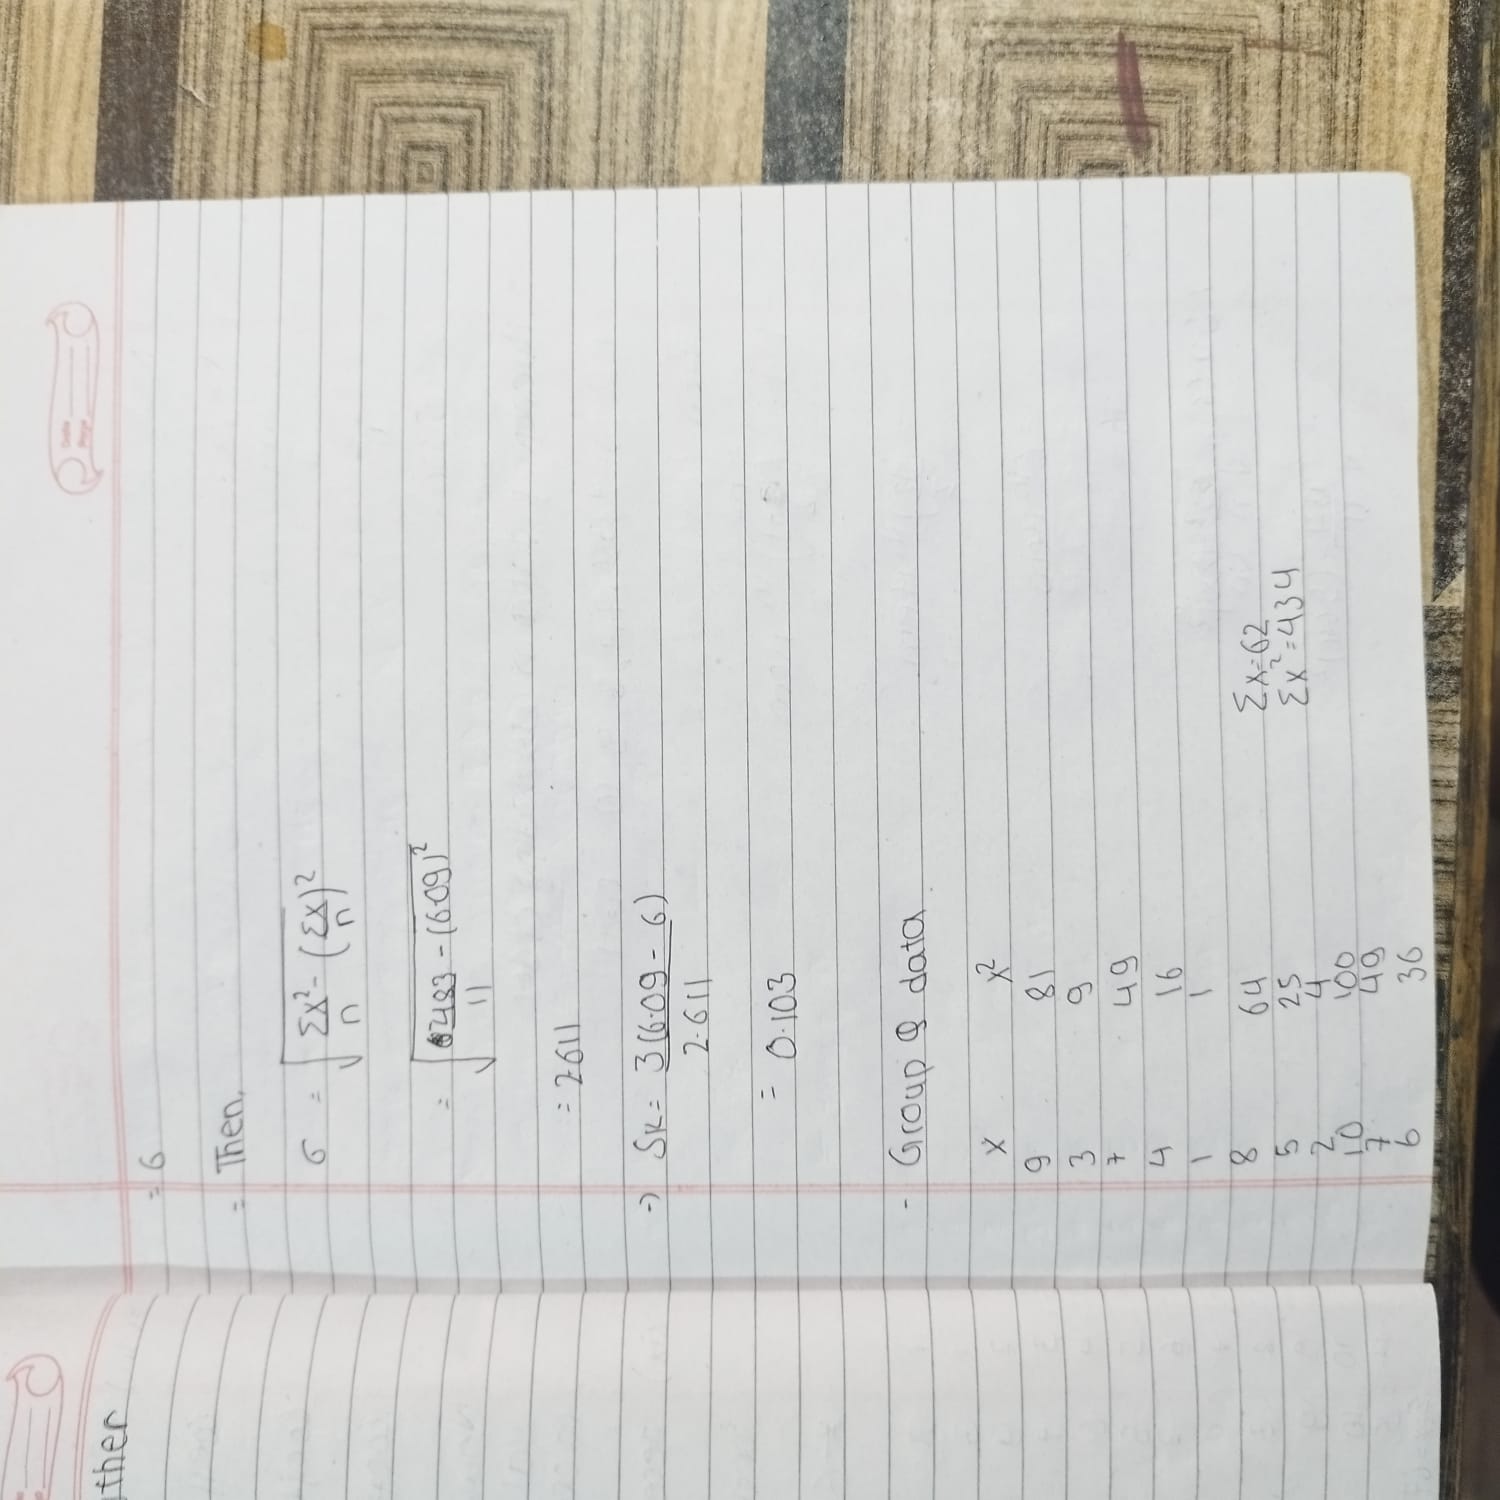 ther
= 6
= Then,
σ = √ΣX²/n - (ΣX/n)²
= √2483/11 - (6.09)²
= 2.611
→ SK = 3(6.09 - 6)/2.611
= 0.103
- Group Q data
X X²
9 81
3 9
7 49
4 16
1 1
8 64
5 25
2 4
10 100
7 49
6 36
Σx=62
Σx²=434